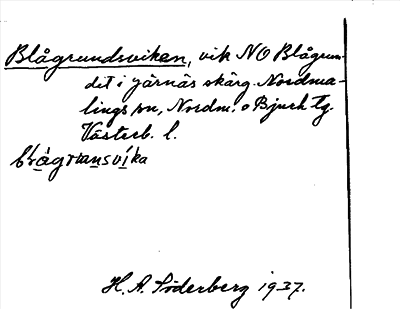 Blågrundsviken, vik NO Blågrun-
det i Järnäs skärg. Nordma-
lings sn, Nordm. o Bjurh tg.
Västerb. l.
H. A. Söderberg 1937.